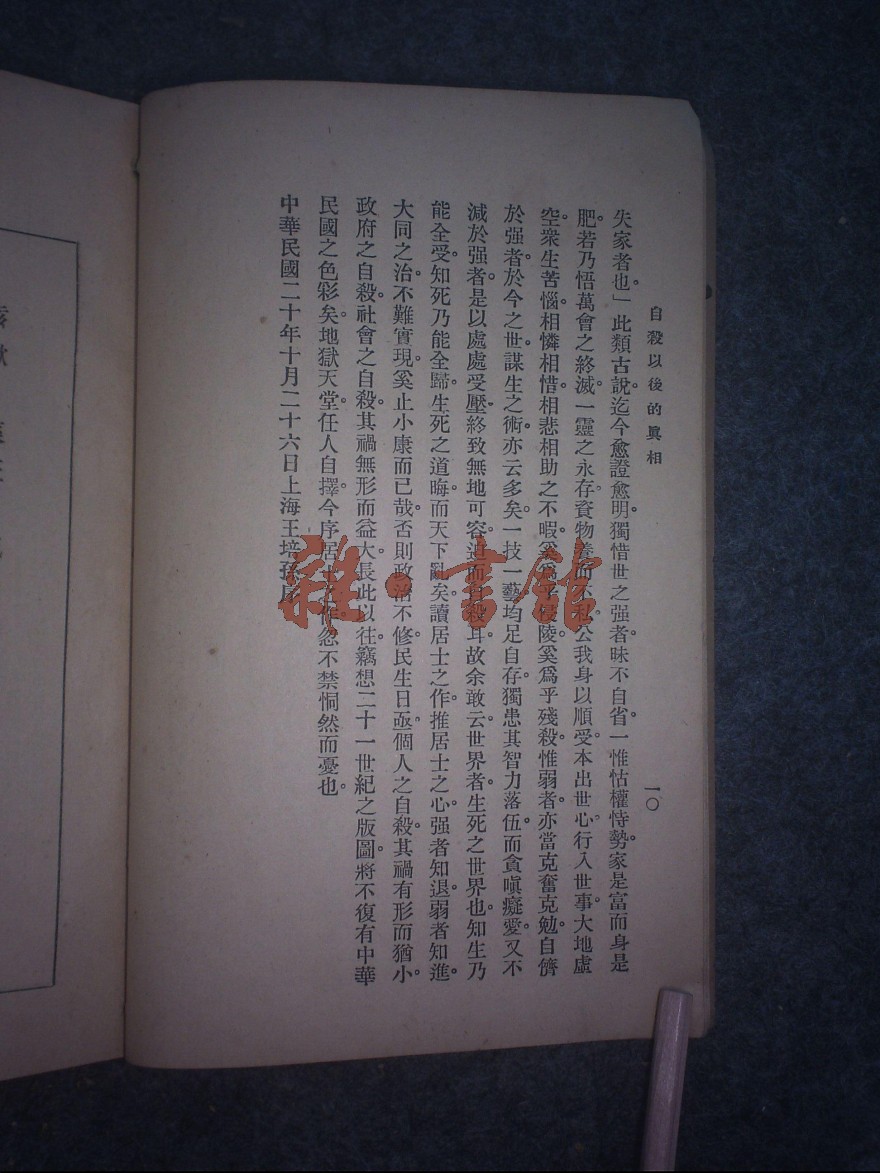 自殺以後的眞相
一〇
失家者也。」此類古說。迄今愈證愈明。獨惜世之强者昧不自省。一惟怙權恃勢。家是富而身是
肥。若乃悟萬會之終滅。一靈之永存。資物養而不私公。我身以順受。本出世心。行入世事。大地虛
空。衆生苦惱。相憐相惜。相悲相助之不暇。奚爲乎侵陵。奚爲乎殘殺。惟弱者亦當克奮克勉。自儕
於强者。於今之世。謀生之術亦云多矣。一技一藝。均足自存。獨患其智力落伍。而貪嗔癡愛。又不
減於强者。是以處處受壓。終致無地可容。迫而自殺耳。故余敢云世界者。生死之世界也。知生乃
能全受。知死乃能全歸。生死之道晦。而天下亂矣。讀居士之作。推居士之心。强者知退。弱者知進。
大同之治。不難實現。奚止小康而已哉。否則政治不修。民生日亟。個人之自殺。其禍有形而猶小。
政府之自殺。社會之自殺。其禍無形而益大。長此以往。竊想二十一世紀之版圖。將不復有中華
民國之色彩矣。地獄天堂。任人自擇。今序居士之作。忽不禁恫然而憂也。
中華民國二十年十月二十六日上海王培孫序
雜·書館